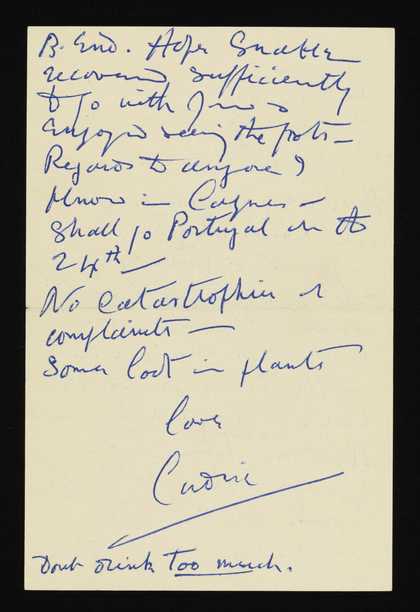 B. End. Hope Snabba
recovered sufficiently
to go with you &
enjoyed seeing the frots —
Regards to anyone I
know in Cagnes —
Shall go Portugal on the
24th —
No catastrophies or
complaints —
Some loot in plants
love
Cedric
Dont drink too much.